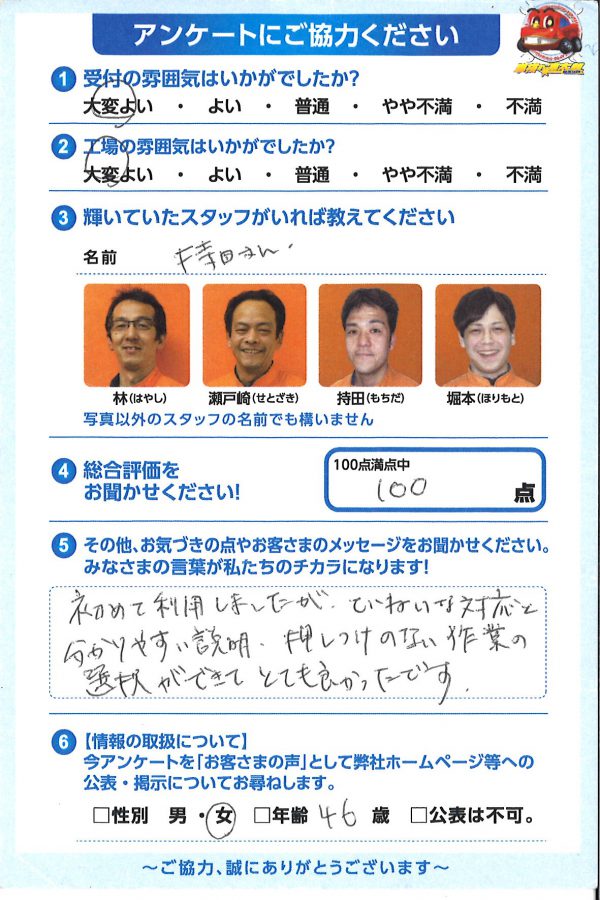 アンケートにご協力ください
1 受付の雰囲気はいかがでしたか?
大変よい ・ よい ・ 普通 ・ やや不満 ・ 不満
2 工場の雰囲気はいかがでしたか?
大変よい ・ よい ・ 普通 ・ やや不満 ・ 不満
3 輝いていたスタッフがいれば教えてください
名前 持田さん.
林(はやし) 瀬戸崎(せとざき) 持田(もちだ) 堀本(ほりもと)
写真以外のスタッフの名前でも構いません
4 総合評価を
お聞かせください!
100点満点中
100 点
5 その他、お気づきの点やお客さまのメッセージをお聞かせください。
みなさまの言葉が私たちのチカラになります!
初めて利用しましたが、ていねいな対応と
分かりやすい説明、押しつけのない作業の
選択ができてとても良かったです。
6 【情報の取扱について】
今アンケートを「お客さまの声」として弊社ホームページ等への
公表・掲示についてお尋ねします。
□性別 男・女 □年齢 46 歳 □公表は不可。
〜ご協力、誠にありがとうございます〜